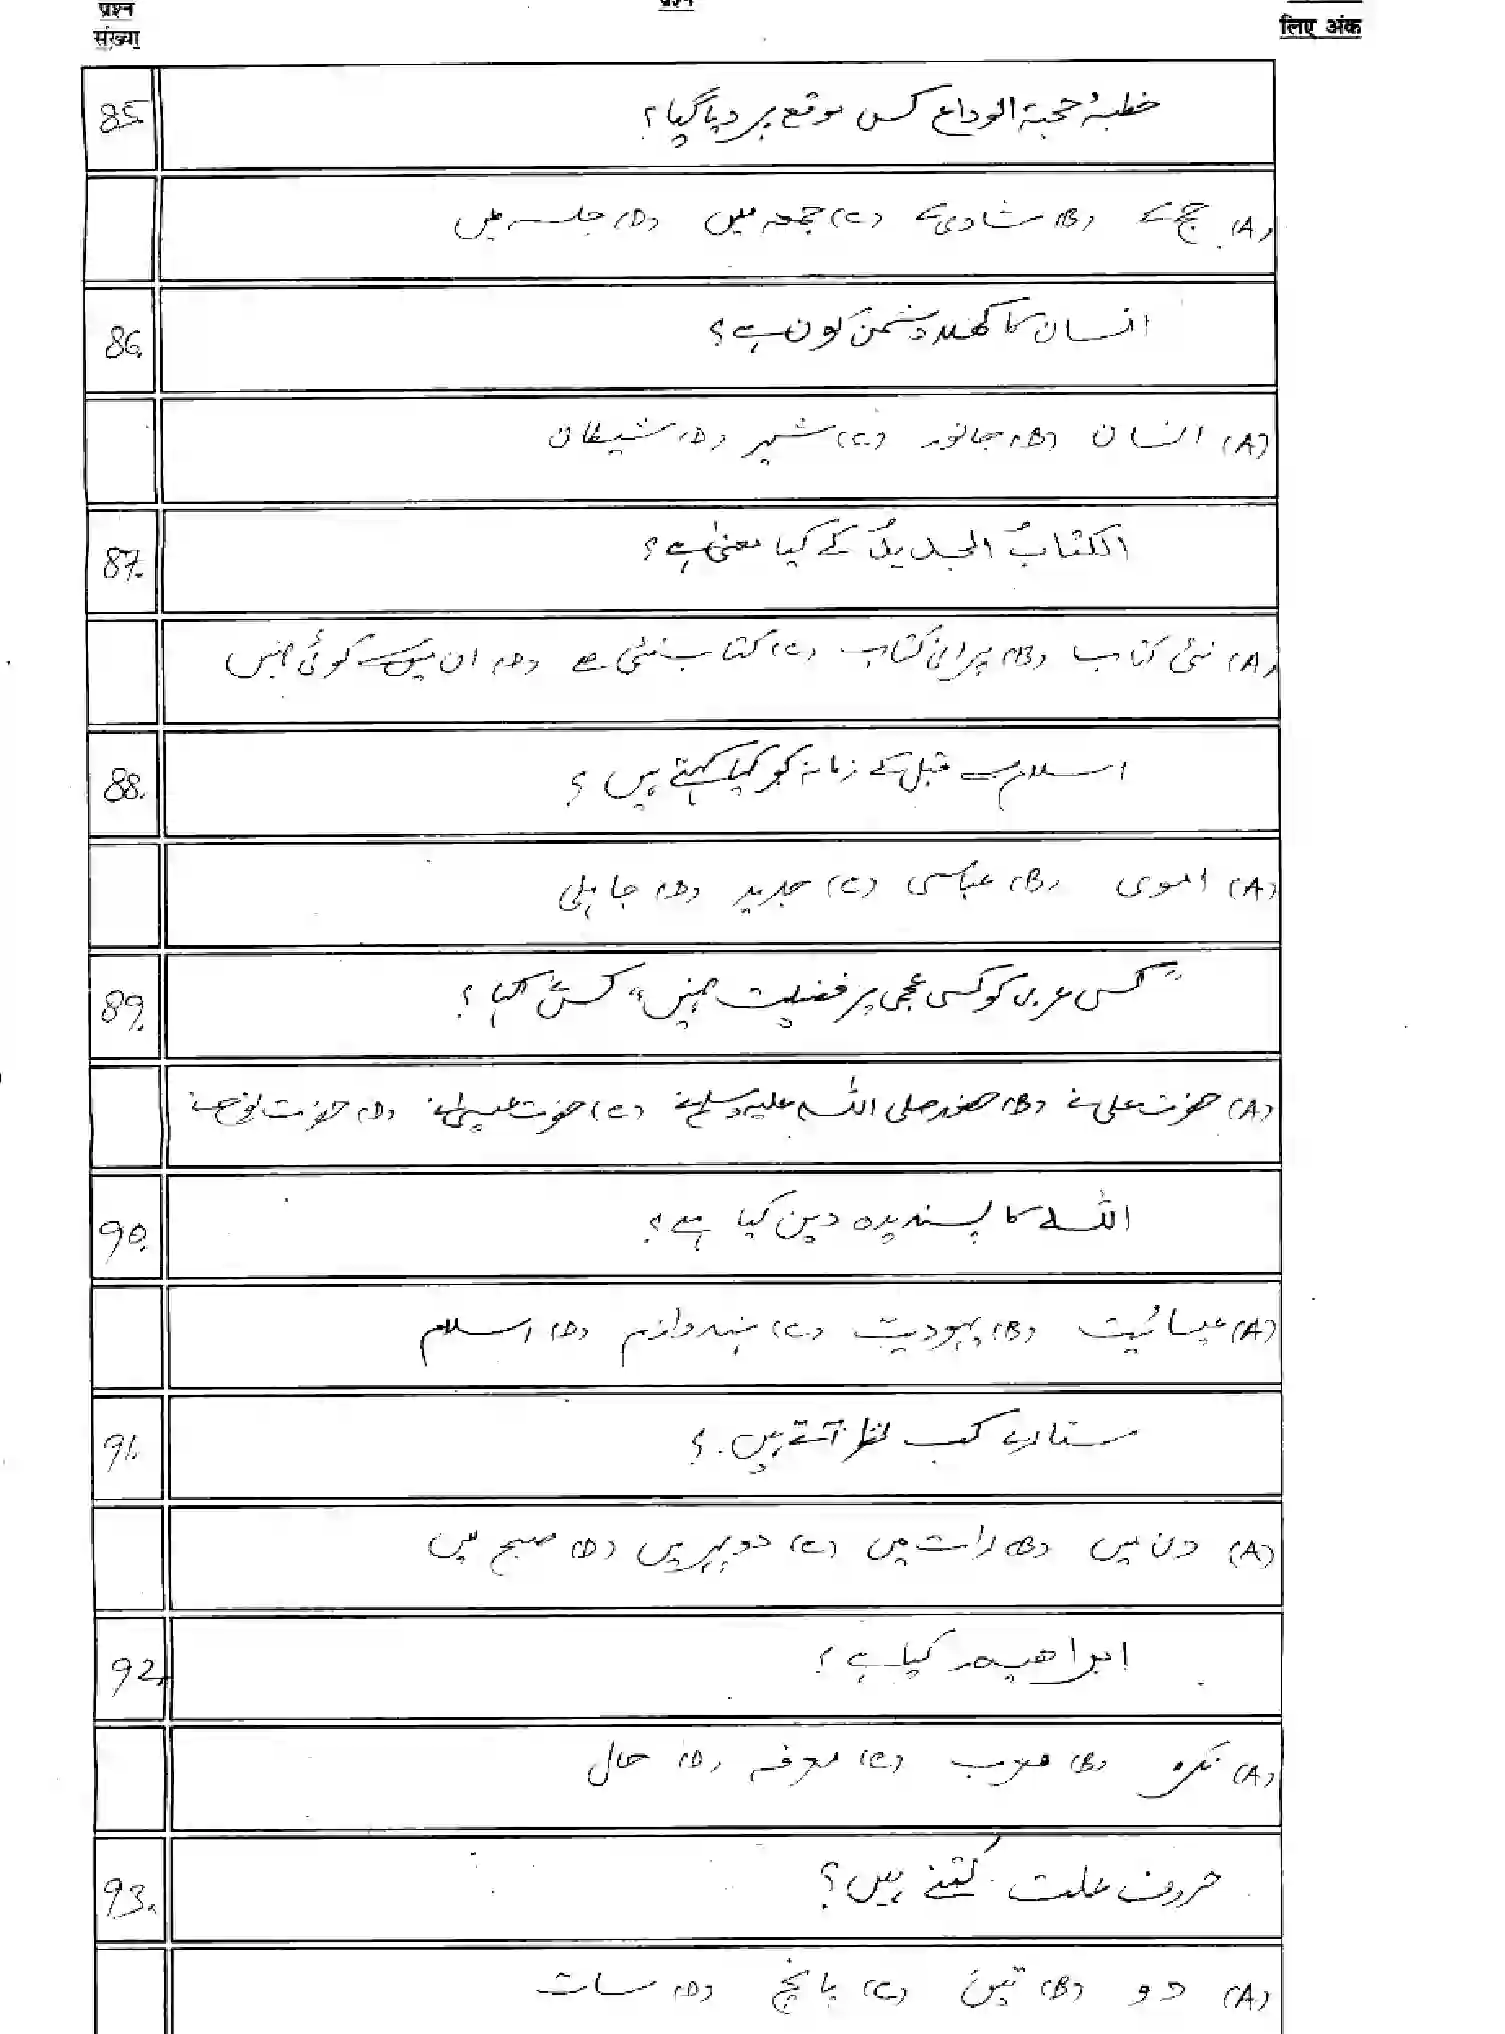 प्रश्न
संख्या
प्रश्न
लिए अंक
85 خطبۂ حجۃ الوداع کس موقع پر دیا گیا؟
(A) حج کے (B) شادی کے (C) جمعہ میں (D) جلسہ میں
86. انسان کا کھلا دشمن کون ہے؟
(A) انسان (B) جانور (C) شیر (D) شیطان
87. الکتابُ الجدیدُ کے کیا معنیٰ ہے؟
(A) نئی کتاب (B) پرانی کتاب (C) کتاب نئی ہے (D) ان میں سے کوئی نہیں
88. اسلام سے قبل کے زمانہ کو کیا کہتے ہیں؟
(A) اموی (B) عباسی (C) جدید (D) جاہلی
89. "کسی عربی کو کسی عجمی پر فضیلت نہیں" کس نے کہا؟
(A) حضرت علی نے (B) حضور صلی اللہ علیہ وسلم نے (C) حضرت عیسیٰ نے (D) حضرت نوح نے
90. اللہ کا پسندیدہ دین کیا ہے؟
(A) عیسائیت (B) یہودیت (C) ہندوازم (D) اسلام
91. ستارے کب نظر آتے ہیں؟
(A) دن میں (B) رات میں (C) دوپہر میں (D) صبح میں
92. ابراھیم کیا ہے؟
(A) نکرہ (B) معرب (C) معرفہ (D) حال
93. حروف علت کتنے ہیں؟
(A) دو (B) تین (C) پانچ (D) سات